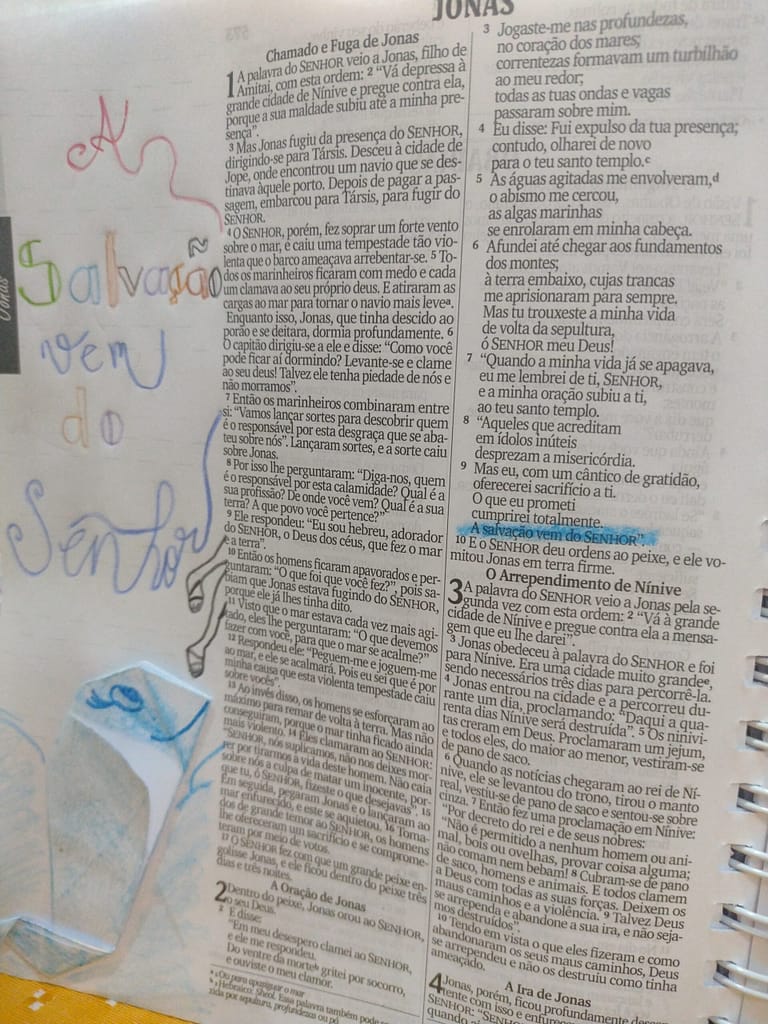 JONAS
Jonas
A
Salvação
vem
do
Senhor
Chamado e Fuga de Jonas
1 A palavra do SENHOR veio a Jonas, filho de
Amitai, com esta ordem: 2 “Vá depressa à
grande cidade de Nínive e pregue contra ela,
porque a sua maldade subiu até a minha pre-
sença”.
3 Mas Jonas fugiu da presença do SENHOR,
dirigindo-se para Társis. Desceu à cidade de
Jope, onde encontrou um navio que se des-
tinava àquele porto. Depois de pagar a pas-
sagem, embarcou para Társis, para fugir do
SENHOR.
4 O SENHOR, porém, fez soprar um forte vento
sobre o mar, e caiu uma tempestade tão vio-
lenta que o barco ameaçava arrebentar-se. 5 To-
dos os marinheiros ficaram com medo e cada
um clamava ao seu próprio deus. E atiraram as
cargas ao mar para tornar o navio mais leve.
Enquanto isso, Jonas, que tinha descido ao
porão e se deitara, dormia profundamente. 6
O capitão dirigiu-se a ele e disse: “Como você
pode ficar aí dormindo? Levante-se e clame
ao seu deus! Talvez ele tenha piedade de nós e
não morramos”.
7 Então os marinheiros combinaram entre
si: “Vamos lançar sortes para descobrir quem
é o responsável por esta desgraça que se aba-
teu sobre nós”. Lançaram sortes, e a sorte caiu
sobre Jonas.
8 Por isso lhe perguntaram: “Diga-nos, quem
é o responsável por esta calamidade? Qual é a
sua profissão? De onde você vem? Qual é a sua
terra? A que povo você pertence?”
9 Ele respondeu: “Eu sou hebreu, adorador
do SENHOR, o Deus dos céus, que fez o mar
e a terra”.
10 Então os homens ficaram apavorados e per-
guntaram: “O que foi que você fez?”, pois sa-
biam que Jonas estava fugindo do SENHOR,
porque ele já lhes tinha dito.
11 Visto que o mar estava cada vez mais agi-
tado, eles lhe perguntaram: “O que devemos
fazer com você, para que o mar se acalme?”
12 Respondeu ele: “Peguem-me e joguem-me
ao mar, e ele se acalmará. Pois eu sei que é por
minha causa que esta violenta tempestade caiu
sobre vocês”.
13 Ao invés disso, os homens se esforçaram ao
máximo para remar de volta à terra. Mas não
conseguiram, porque o mar tinha ficado ainda
mais violento. 14 Eles clamaram ao SENHOR:
“SENHOR, nós suplicamos, não nos deixes mor-
rer por tirarmos a vida deste homem. Não caia
sobre nós a culpa de matar um inocente, por-
que tu, ó SENHOR, fizeste o que desejavas”. 15
Em seguida, pegaram Jonas e o lançaram ao
mar enfurecido, e este se aquietou. 16 Toma-
dos de grande temor ao SENHOR, os homens
lhe ofereceram um sacrifício e se comprome-
teram por meio de votos.
17 O SENHOR fez com que um grande peixe en-
golisse Jonas, e ele ficou dentro do peixe três
dias e três noites.
A Oração de Jonas
2 Dentro do peixe, Jonas orou ao SENHOR,
o seu Deus.
2 E disse:
“Em meu desespero clamei ao SENHOR,
e ele me respondeu.
Do ventre da morte gritei por socorro,
e ouviste o meu clamor.
a Ou para apaziguar o mar
b Hebraico: Sheol. Essa palavra também pode
zida por sepultura, profundezas ou pó
3 Jogaste-me nas profundezas,
no coração dos mares;
correntezas formavam um turbilhão
ao meu redor;
todas as tuas ondas e vagas
passaram sobre mim.
4 Eu disse: Fui expulso da tua presença;
contudo, olharei de novo
para o teu santo templo.c
5 As águas agitadas me envolveram,d
o abismo me cercou,
as algas marinhas
se enrolaram em minha cabeça.
6 Afundei até chegar aos fundamentos
dos montes;
à terra embaixo, cujas trancas
me aprisionaram para sempre.
Mas tu trouxeste a minha vida
de volta da sepultura,
ó SENHOR meu Deus!
7 “Quando a minha vida já se apagava,
eu me lembrei de ti, SENHOR,
e a minha oração subiu a ti,
ao teu santo templo.
8 “Aqueles que acreditam
em ídolos inúteis
desprezam a misericórdia.
9 Mas eu, com um cântico de gratidão,
oferecerei sacrifício a ti.
O que eu prometi
cumprirei totalmente.
A salvação vem do SENHOR”.
10 E o SENHOR deu ordens ao peixe, e ele vo-
mitou Jonas em terra firme.
O Arrependimento de Nínive
3 A palavra do SENHOR veio a Jonas pela se-
gunda vez com esta ordem: 2 “Vá à grande
cidade de Nínive e pregue contra ela a mensa-
gem que eu lhe darei”.
3 Jonas obedeceu à palavra do SENHOR e foi
para Nínive. Era uma cidade muito grandee,
sendo necessários três dias para percorrê-la.
4 Jonas entrou na cidade e a percorreu du-
rante um dia, proclamando: “Daqui a qua-
renta dias Nínive será destruída”. 5 Os ninivi-
tas creram em Deus. Proclamaram um jejum,
e todos eles, do maior ao menor, vestiram-se
de pano de saco.
6 Quando as notícias chegaram ao rei de Ní-
nive, ele se levantou do trono, tirou o manto
real, vestiu-se de pano de saco e sentou-se sobre
cinza. 7 Então fez uma proclamação em Nínive:
“Por decreto do rei e de seus nobres:
“Não é permitido a nenhum homem ou ani-
mal, bois ou ovelhas, provar coisa alguma;
não comam nem bebam! 8 Cubram-se de pano
de saco, homens e animais. E todos clamem
a Deus com todas as suas forças. Deixem os
maus caminhos e a violência. 9 Talvez Deus
se arrependa e abandone a sua ira, e não seja-
mos destruídos”.
10 Tendo em vista o que eles fizeram e como
abandonaram os seus maus caminhos, Deus
se arrependeu e não os destruiu como tinha
ameaçado.
A Ira de Jonas
4 Jonas, porém, ficou profundamente
tente com isso e
SENHOR:
quando